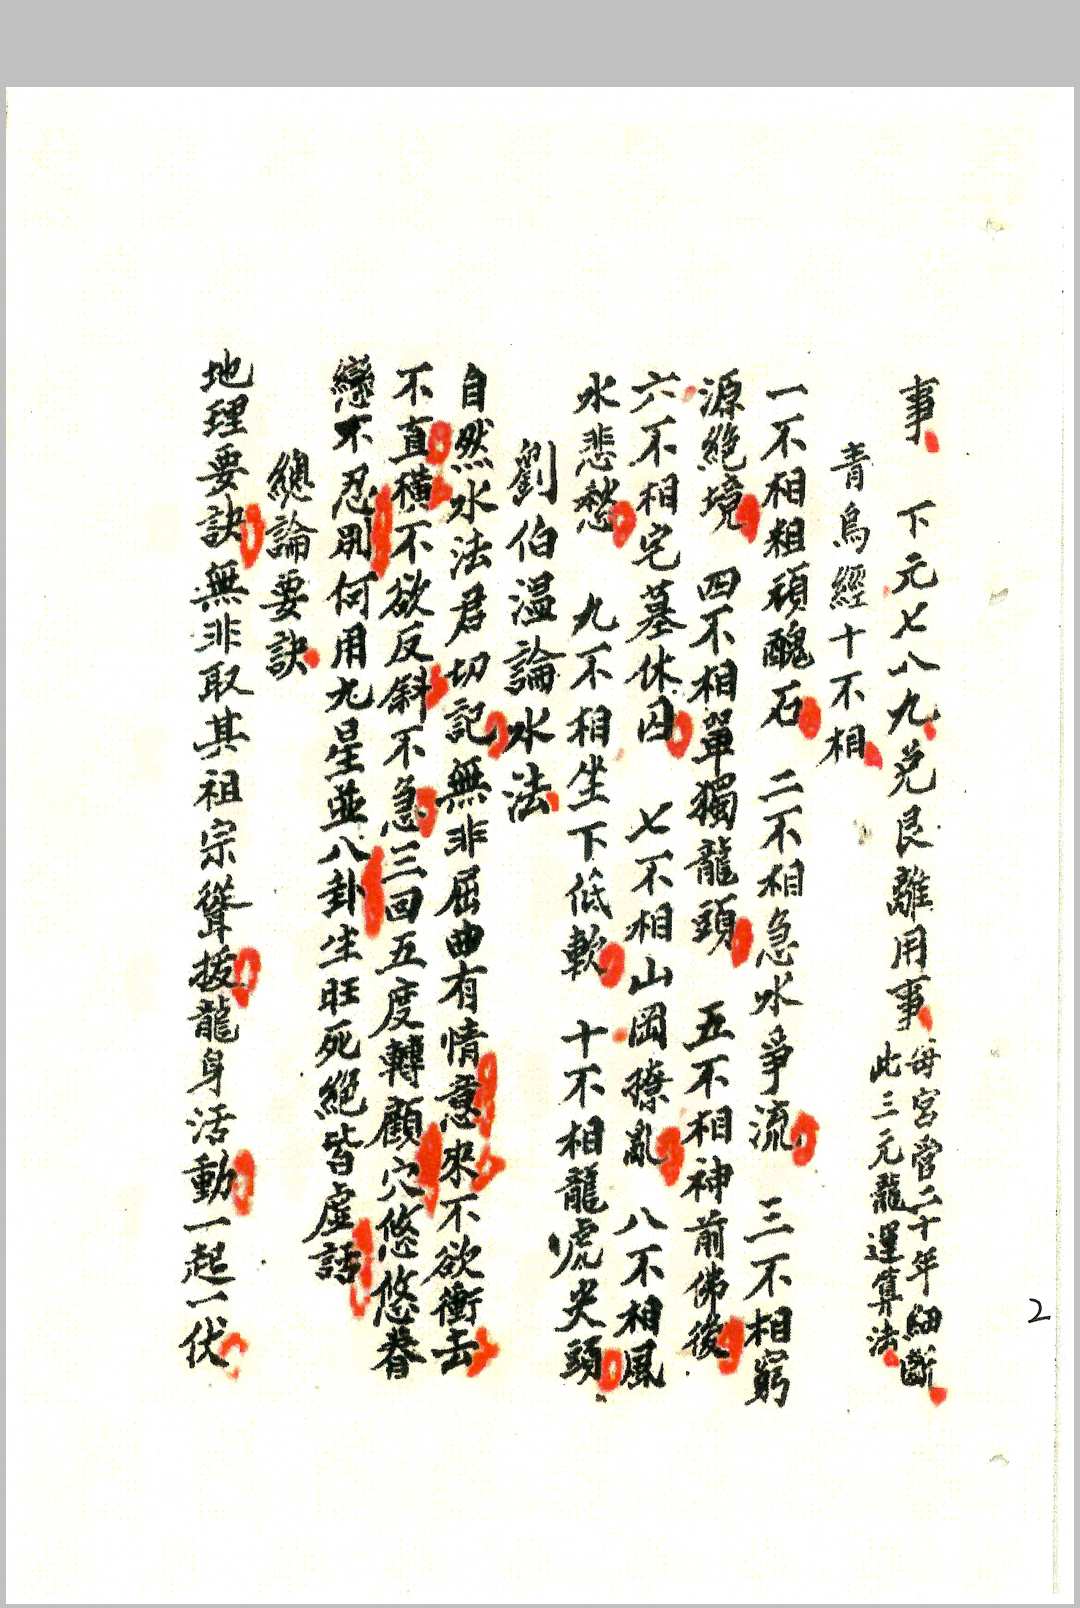 事 下元七八九兌艮離用事 每宮當二十年細斷
此三元龍運算法
青烏經十不相
一不相粗頑醜石 二不相急水爭流 三不相窮
源絕境 四不相單獨龍頭 五不相神前佛後
六不相宅墓休囚 七不相山岡撩亂 八不相風
水悲愁 九不相坐下低軟 十不相龍虎尖頭
劉伯溫論水法
自然水法君切記無非屈曲有情意來不欲衝去
不直橫不欲反斜不急三回五度轉顧穴悠悠眷
戀不忍別何用九星並八卦生旺死絕皆虛話
總論要訣
地理要訣無非取其祖宗聳拔龍身活動一起一伏
2